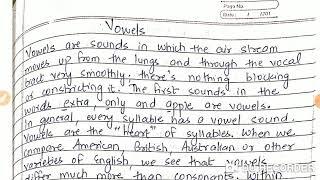 Page No.
Date: / /201
Vowels
Vowels are sounds in which the air stream
moves up from the lungs and through the vocal
tract very smoothly; there's nothing blocking
or constricting it. The first sounds in the
words extra, only and apple are vowels.
In general, every syllable has a vowel sound.
Vowels are the "heart" of syllables. When we
compare American, British, Australian or other
varieties of English, we see that vowels
differ much more than consonants. Within